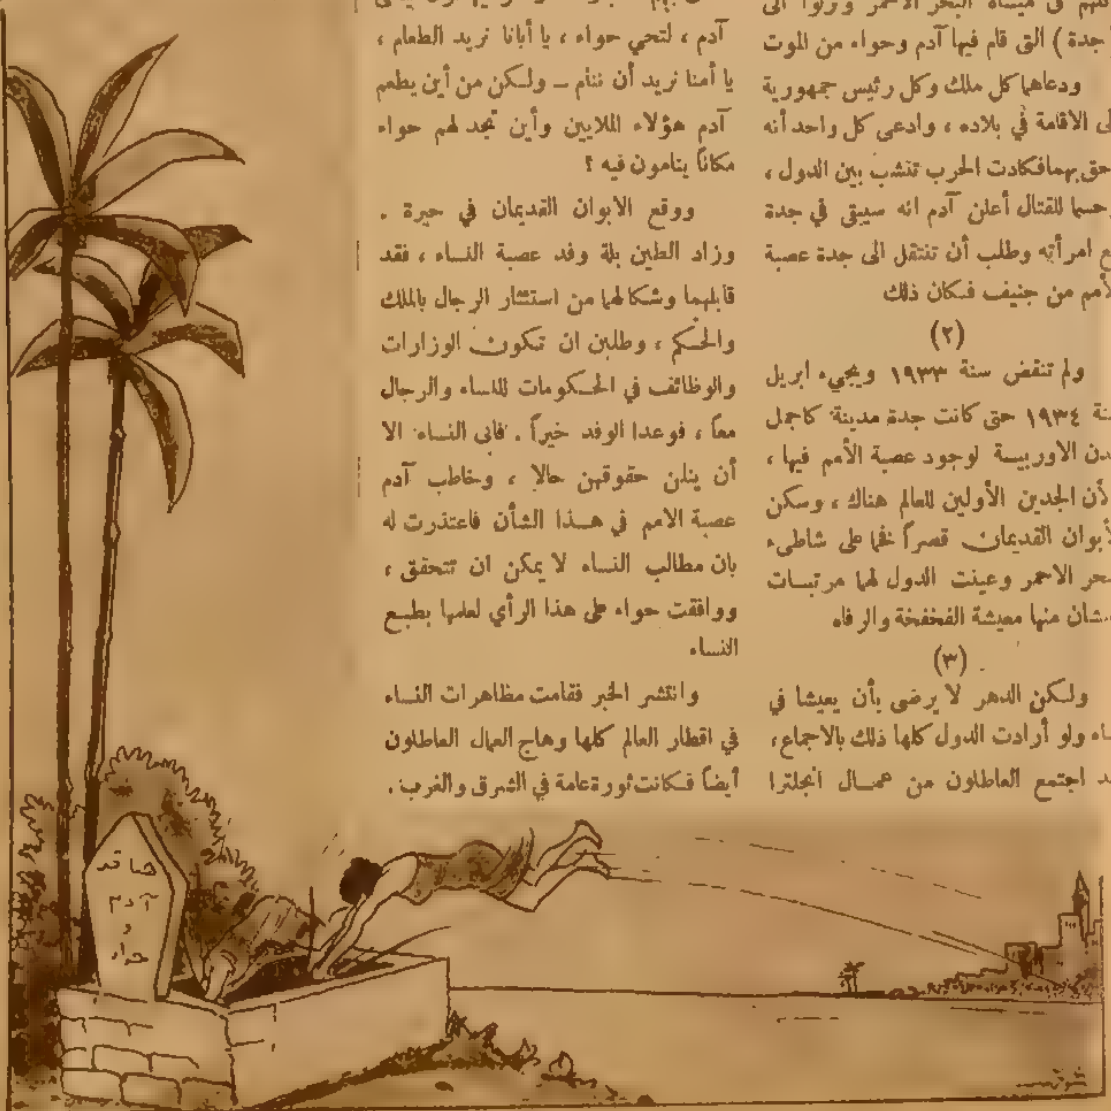 في مياه البحر الأحمر ونزلوا الى
جدة ) التى قام فيها آدم وحواء من الموت
ودعاهما كل ملك وكل رئيس جمهورية
الاقامة في بلاده ، وادعى كل واحد أنه
بهما فكادت الحرب تنشب بين الدول ،
للقتال أعلن آدم انه سيبقى في جدة
امرأته وطلب أن تنتقل الى جدة عصبة
من جنيف فكان ذلك
(٢)
ولم تنقض سنة ١٩٣٣ ويجيء ابريل
١٩٣٤ حتى كانت جدة مدينة كاجمل
الاوربيسة لوجود عصبة الأمم فيها ،
لأن الجدين الأولين للعالم هناك ، وسكن
القديمان قصراً فخما على شاطىء
الاحمر وعينت الدول لهما مرتبات
منها معيشة الفخفخة والرفاه
(٣)
ولكن الدهر لا يرضى بأن يعيشا في
ولو أرادت الدول كلها ذلك بالاجماع ،
اجتمع العاطلون من عمال انجلترا
آدم ، لتحي حواء ، يا أبانا نريد الطعام ،
يا أمنا نريد أن ننام – ولكن من أين يطعم
آدم هؤلاء الملايين وأين تجد لهم حواء
مكاناً ينامون فيه ؟
ووقع الابوان القديمان في حيرة .
وزاد الطين بلة وفد عصبة النساء ، فقد
قابلهما وشكا لهما من استئثار الرجال بالملك
والحكم ، وطلبن ان تكون الوزارات
والوظائف في الحكومات للنساء والرجال
معاً ، فوعدا الوفد خيراً . فأبى النساء الا
أن ينلن حقوقهن حالا ، وخاطب آدم
عصبة الامم في هذا الشأن فاعتذرت له
بان مطالب النساء لا يمكن ان تتحقق ،
ووافقت حواء على هذا الرأي لعلمها بطبع
النساء
وانتشر الخبر فقامت مظاهرات النساء
في اقطار العالم كلها وهاج العمال العاطلون
أيضاً فكانت ثورة عامة في الشرق والغرب .
هنا قد
آدم
و
حواء